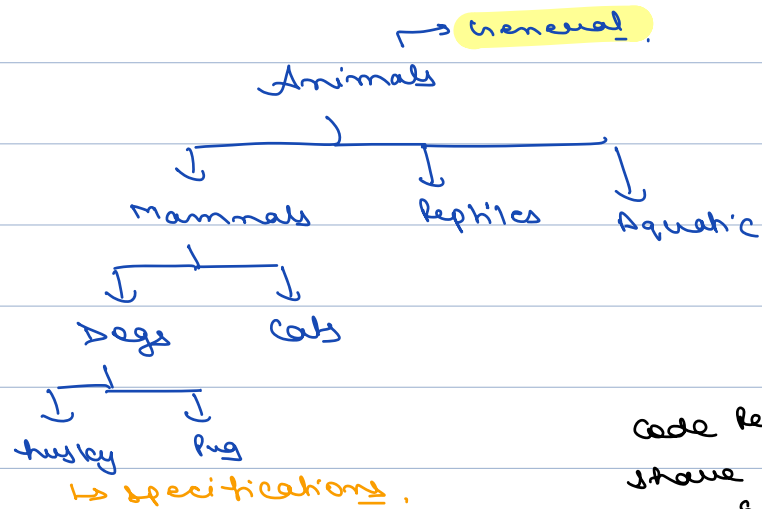 General.
Animals
Mammals Reptiles Aquatic
Dogs Cats
husky Pug
code Re
specifications. share